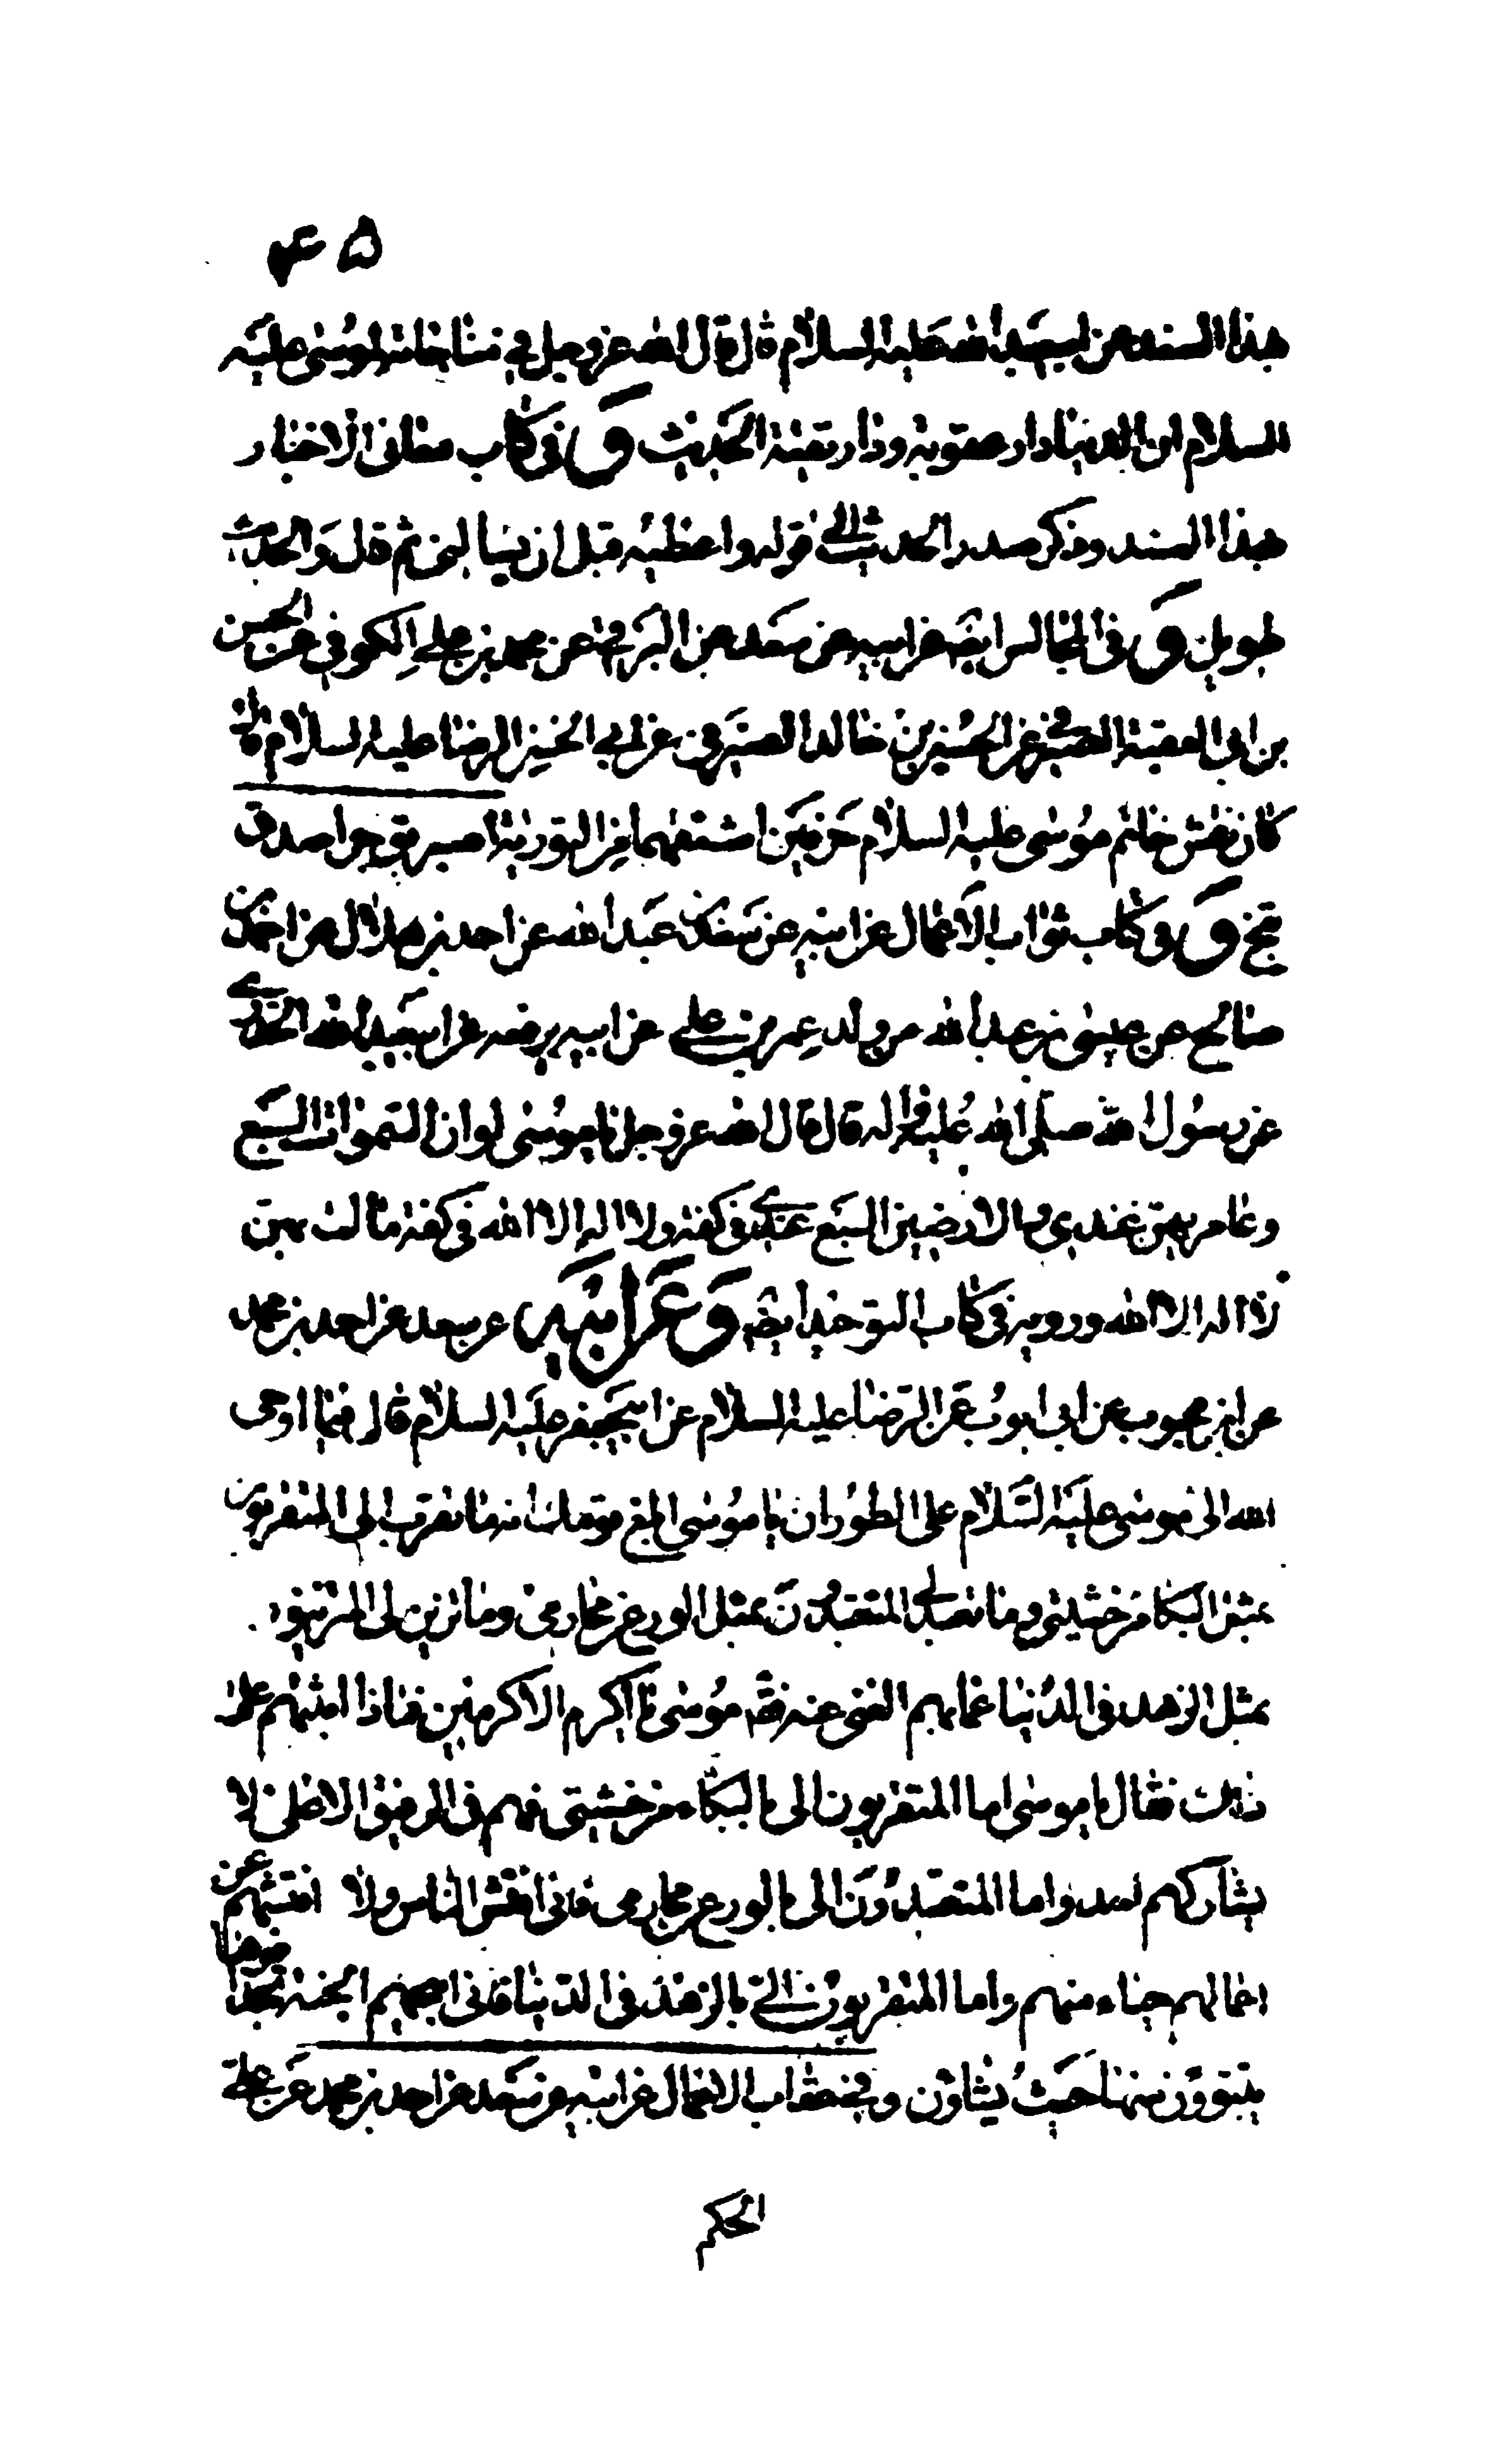 ۴۵
بهذا السند عن ابيعبد الله عليه السلام قال قال الله عز وجل في مناجاته لموسى عليه
السلام ان الدنيا دار عقوبة وذا بقية الحديث وفي كتاب معاني الاخبار
بهذا السند وذكر صدر الحديث الى قوله واعظيه قبل ان ثم قال والحديث
طويل وفى المجالس ايضا عن ابيه عن سعد عن البرقي عن محمد بن علي الكوفي عن الحسن
بن ابى العقبة الصيرفي عن الحسين بن خالد الصيرفي عن ابي الحسن الرضا عليه السلام قال
كان نقش خاتم موسى عليه السلام حرفين اشتقهما من التورية اصبر توجر اصدق
تنج وفي كتاب ثواب الاعمال عن ابيه عن سعد بن عبد الله عن احمد بن هلال عن احمد بن
صالح عن عيسى بن عبد الله من ولد عمر بن علي عن ابيه يرفعه عن ابي سعيد الخدري
عن رسول الله صلى الله عليه واله قال قال الله عز وجل يا موسى لو ان السموات السبع
وعامريهن عندي والارضين السبع عندي في كفة ولا اله الا الله في كفة مالت بهن
لا اله الا الله ورويه في كتاب التوحيد ايضا وعن ابيه عن سعد عن احمد بن محمد
عن ابن محبوب عن ابي ايوب عن الرضا عليه السلام عن ابيجعفر عليه السلام قال فيما اوحى
الله الى موسى عليه السلام على الطور ان يا موسى ابلغ قومك انه ما تقرب الى المتقربون
بمثل البكا من خشيتي وما تعبد لي المتعبدون بمثل الورع عن محارمي وما تزين لى المتزينون
بمثل الزهد فى الدنيا عما بهم الغنى عنه فقال موسى يا اكرم الاكرمين فماذا اثبتهم على
ذلك فقال يا موسى اما المتقربون الى بالبكاء من خشيتى فهم فى الرفيق الاعلى لا
يشاركهم احد واما المتعبدون الى بالورع عن محارمي فانى افتش الناس ولا افتشهم عن
اعمالهم حياء منهم واما المتقربون الي بالزهد فى الدنيا فانى ابيحهم الجنة بحذافيرها
يتبوؤن منها حيث يشاؤن وفي ثواب الاعمال عن ابيه عن سعد عن احمد بن محمد عن علي بن
الحكم